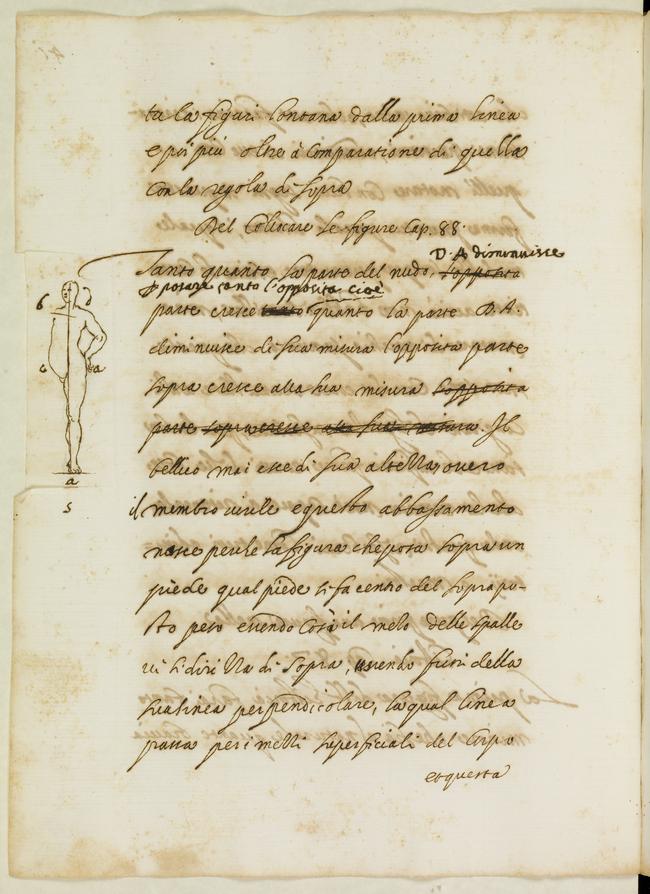 ta la figura lontana dalla prima linea
e poi più oltre à comparatione di quella
con la regola di sopra
Del Collocare le figure Cap. 88.
D. A diminuisce
Tanto quanto la parte del nudo, l'opposita
p posare tanto l'opposita cioè
parte cresce tanto quanto la parte D. A.
diminuisce di sua misura l'opposita parte
sopra cresce alla sua misura l'opposita
parte sopra cresce alla sua misura. Il
bellico mai esce di sua altezza, overo
il membro virile e questo abbassamento
nasce perche la figura che posa sopra un
piede qual piede si fa centro del soprapo-
sto peso essendo così il mezo delle spalle
vi si dirizza di sopra, uscendo fuori della
sua linea perpendicolare, la qual linea
passa per i mezzi superficiali del corpo
et questa
6
c
a
a
s